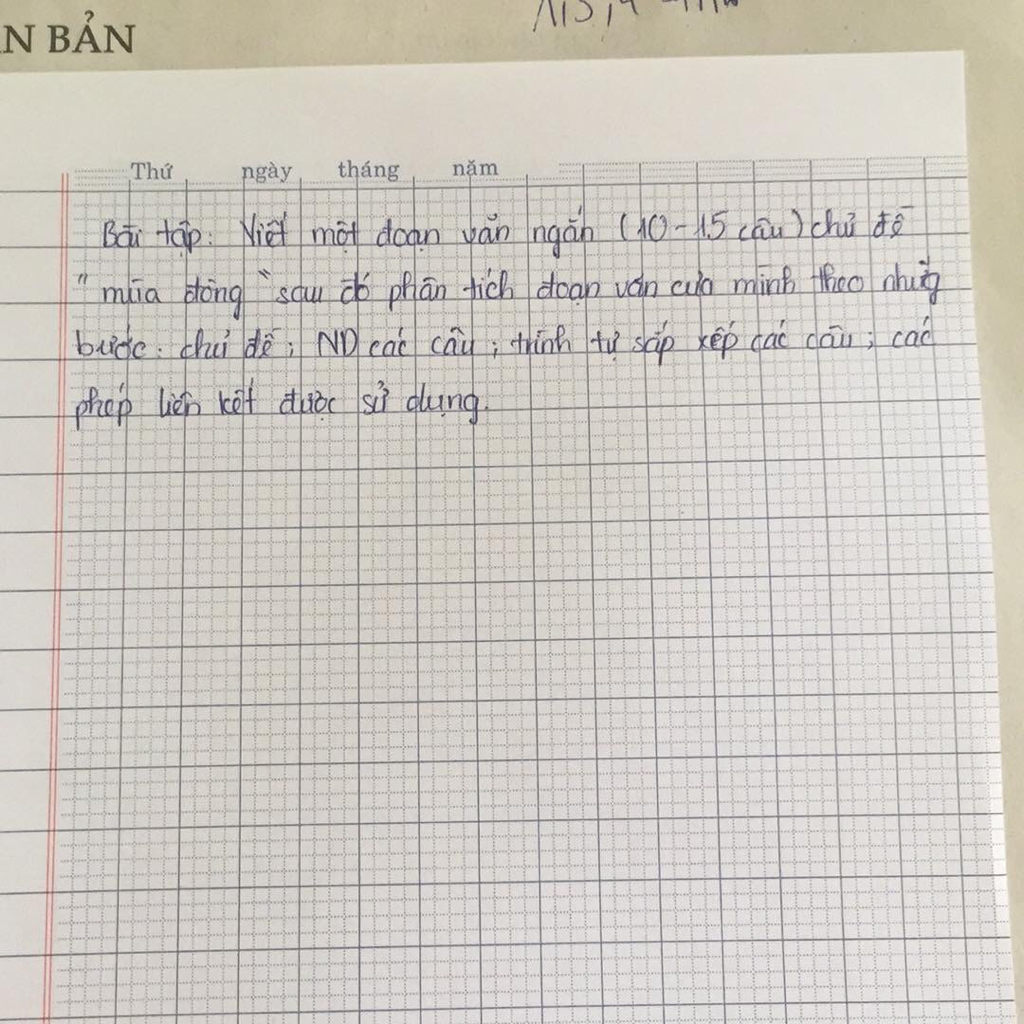 N BẢN
Thứ ngày tháng năm
Bài tập: Viết một đoạn văn ngắn (10-15 câu) chủ đề
"mùa đông" sau đó phân tích đoạn văn của mình theo những
bước: chủ đề; ND các câu; trình tự sắp xếp các câu; các
phép liên kết được sử dụng.